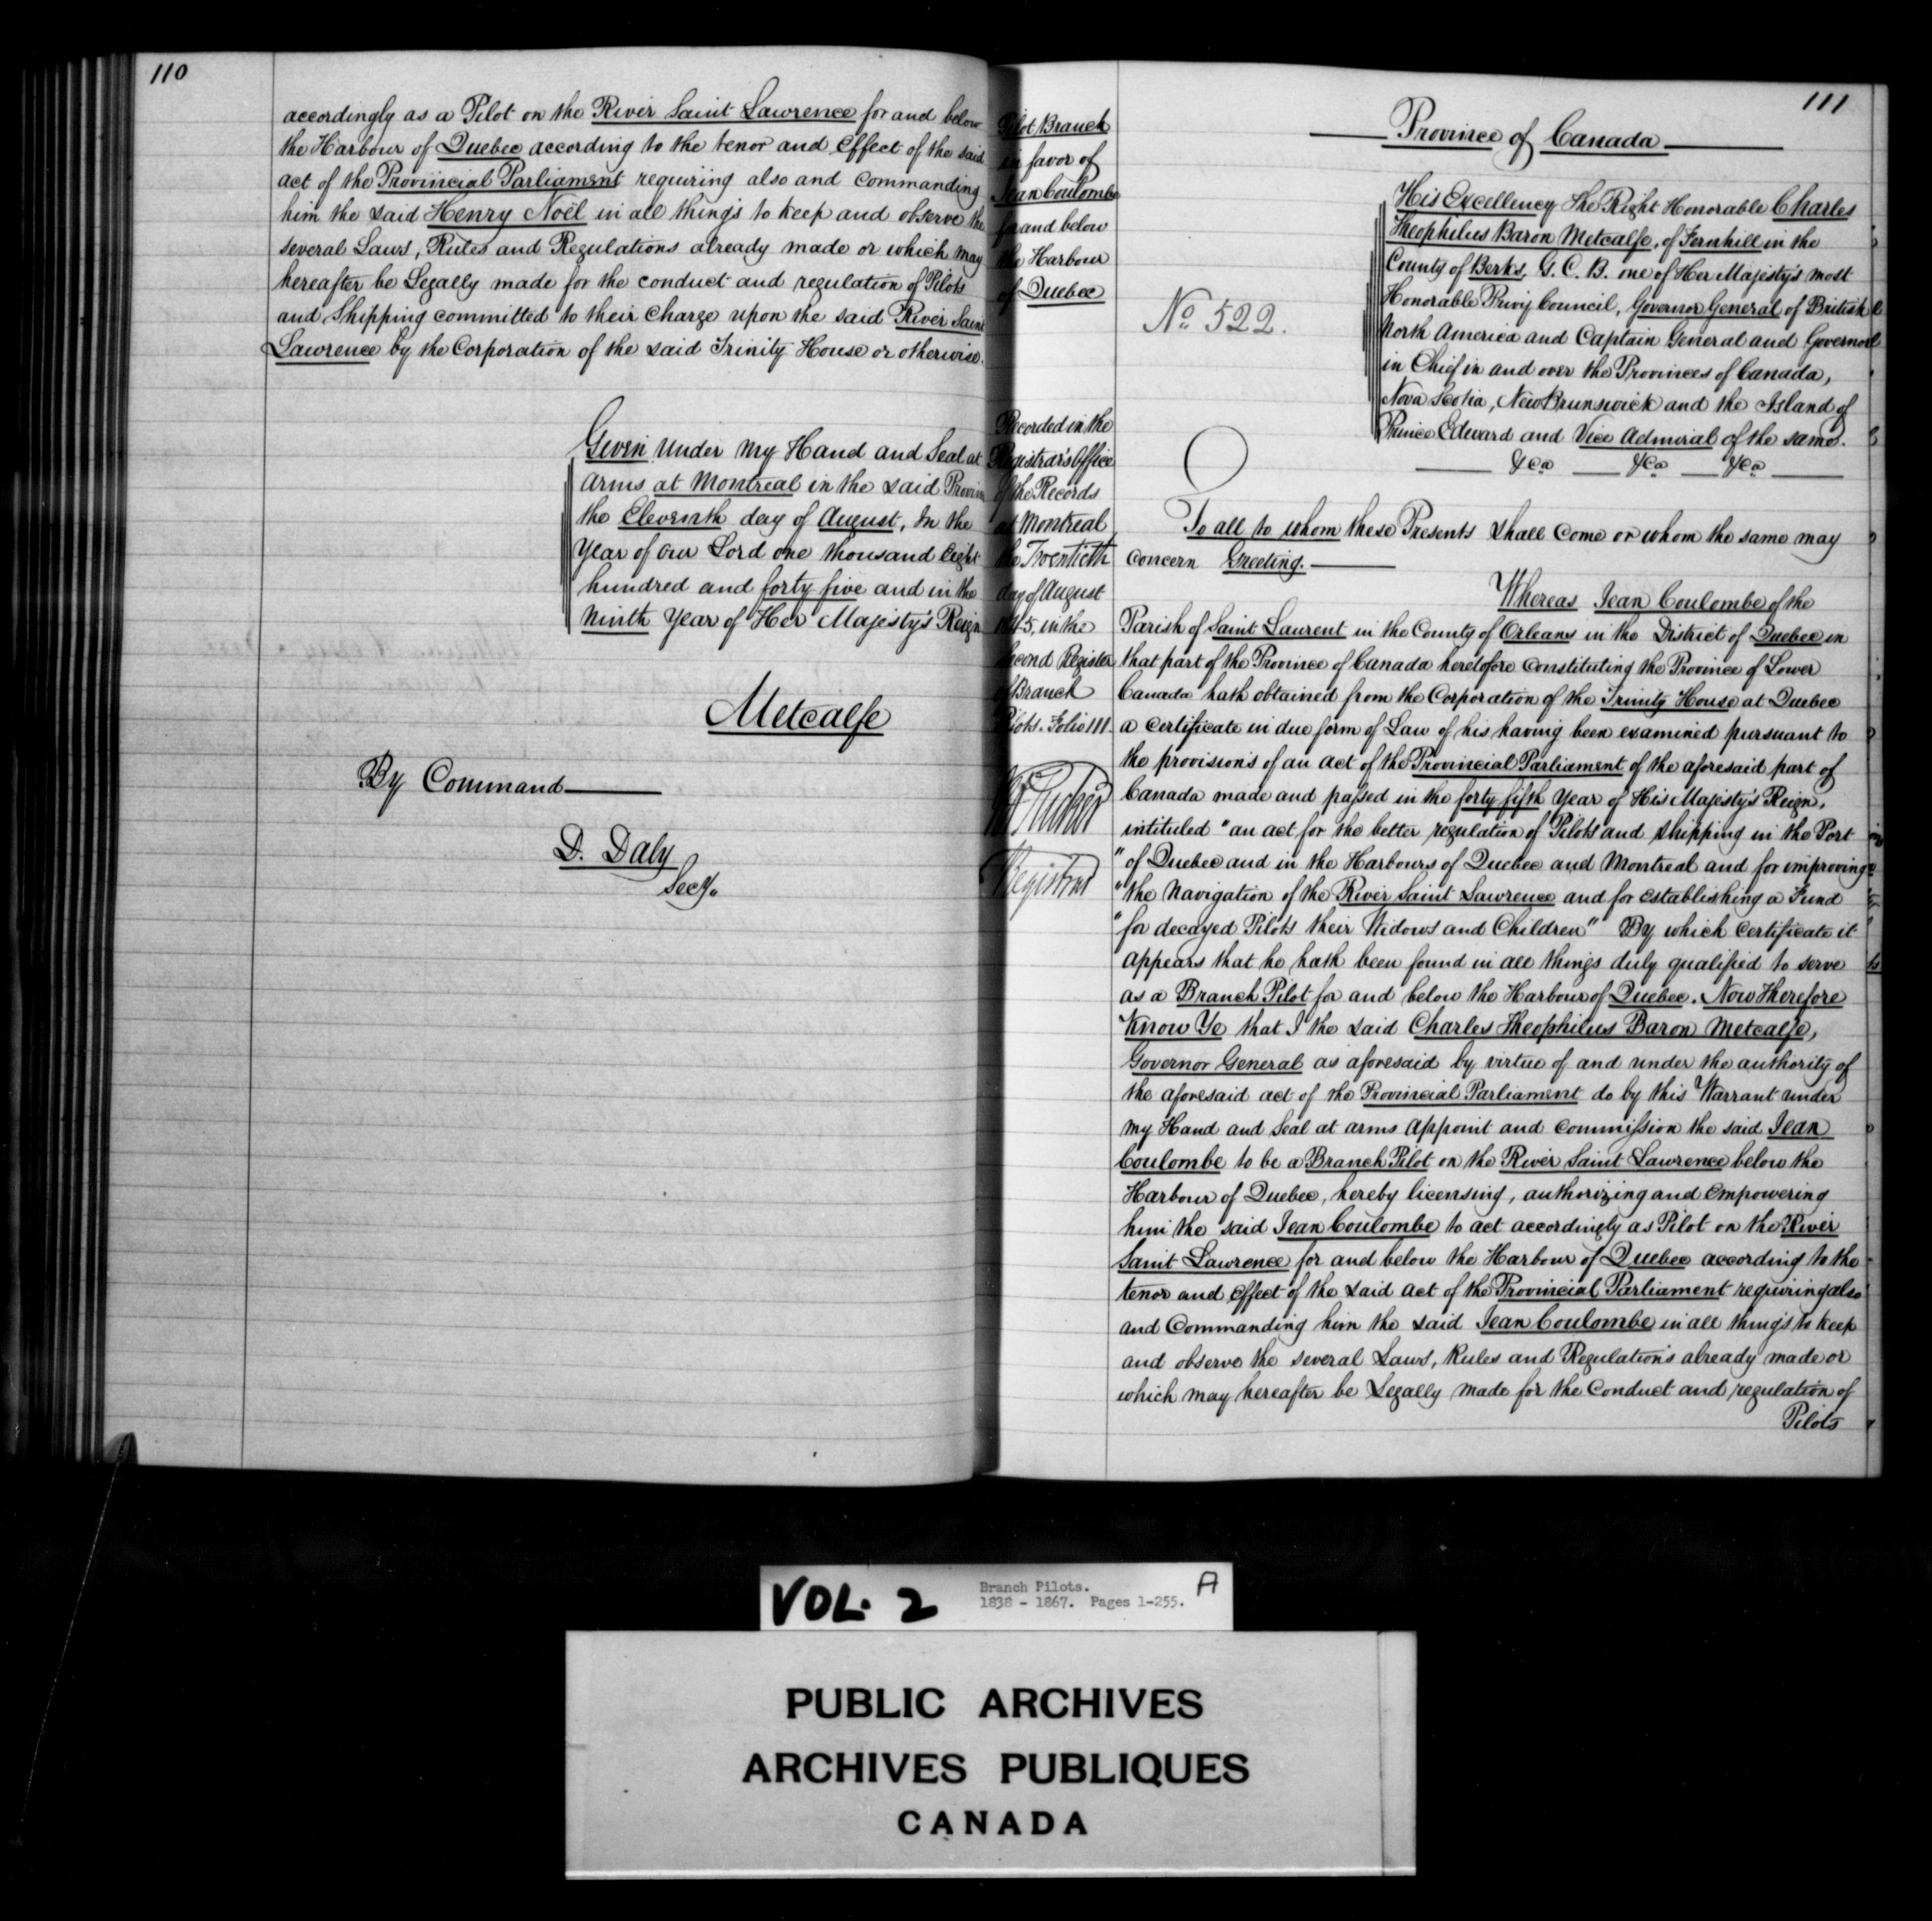 110
accordingly as a Pilot on the River Saint Lawrence for and below
the Harbour of Quebec according to the tenor and Effect of the said
act of the Provincial Parliament requiring also and commanding
him the said Henry Noël in all things to keep and observe the
several Laws, Rules and Regulations already made or which may
hereafter be Legally made for the conduct and regulation of Pilots
and Shipping committed to their charge upon the said River Saint
Lawrence by the Corporation of the said Trinity House or otherwise.
Given under my Hand and Seal at
arms at Montreal in the said Province
the Eleventh day of August, In the
Year of our Lord one thousand Eight
hundred and forty five and in the
Ninth Year of Her Majesty's Reign
Metcalfe
By Command
D. Daly
Secy.
111
Pilot Branch
in favor of
Jean Coulombe
for and below
the Harbour
of Quebec
No 522.
Recorded in the
Registrar's Office
of the Records
at Montreal
the Twentieth
day of August
1845, in the
Second Register
of Branch
Pilots. Folio 111.
Registrar
Province of Canada
His Excellency The Right Honorable Charles
Theophilus Baron Metcalfe, of Fernhill in the
County of Berks, G. C. B. one of Her Majesty's most
Honorable Privy Council, Governor General of British
North America and Captain General and Governor
in Chief in and over the Provinces of Canada,
Nova Scotia, New Brunswick and the Island of
Prince Edward and Vice Admiral of the same.
&ca &ca &ca
To all to whom these Presents shall come or whom the same may
concern Greeting.
Whereas Jean Coulombe of the
Parish of Saint Laurent in the County of Orleans in the District of Quebec in
that part of the Province of Canada heretofore constituting the Province of Lower
Canada hath obtained from the Corporation of the Trinity House at Quebec
a certificate in due form of Law of his having been examined pursuant to
the provisions of an act of the Provincial Parliament of the aforesaid part of
Canada made and passed in the forty fifth Year of His Majesty's Reign,
intituled "an act for the better regulation of Pilots and shipping in the Port
"of Quebec and in the Harbours of Quebec and Montreal and for improving
"the Navigation of the River Saint Lawrence and for establishing a Fund
"for decayed Pilots their Widows and Children" By which certificate it
appears that he hath been found in all things duly qualified to serve
as a Branch Pilot for and below the Harbour of Quebec. Now Therefore
Know Ye that I the said Charles Theophilus Baron Metcalfe,
Governor General as aforesaid by virtue of and under the authority of
the aforesaid act of the Provincial Parliament do by this Warrant under
my Hand and Seal at arms appoint and commission the said Jean
Coulombe to be a Branch Pilot on the River Saint Lawrence below the
Harbour of Quebec, hereby licensing, authorizing and Empowering
him the said Jean Coulombe to act accordingly as Pilot on the River
Saint Lawrence for and below the Harbour of Quebec according to the
tenor and Effect of the said act of the Provincial Parliament requiring also
and Commanding him the said Jean Coulombe in all things to keep
and observe the several Laws, Rules and Regulations already made or
which may hereafter be Legally made for the Conduct and regulation of
Pilots
VOL. 2
Branch Pilots.
1838 - 1867. Pages 1-255.
A
PUBLIC ARCHIVES
ARCHIVES PUBLIQUES
CANADA